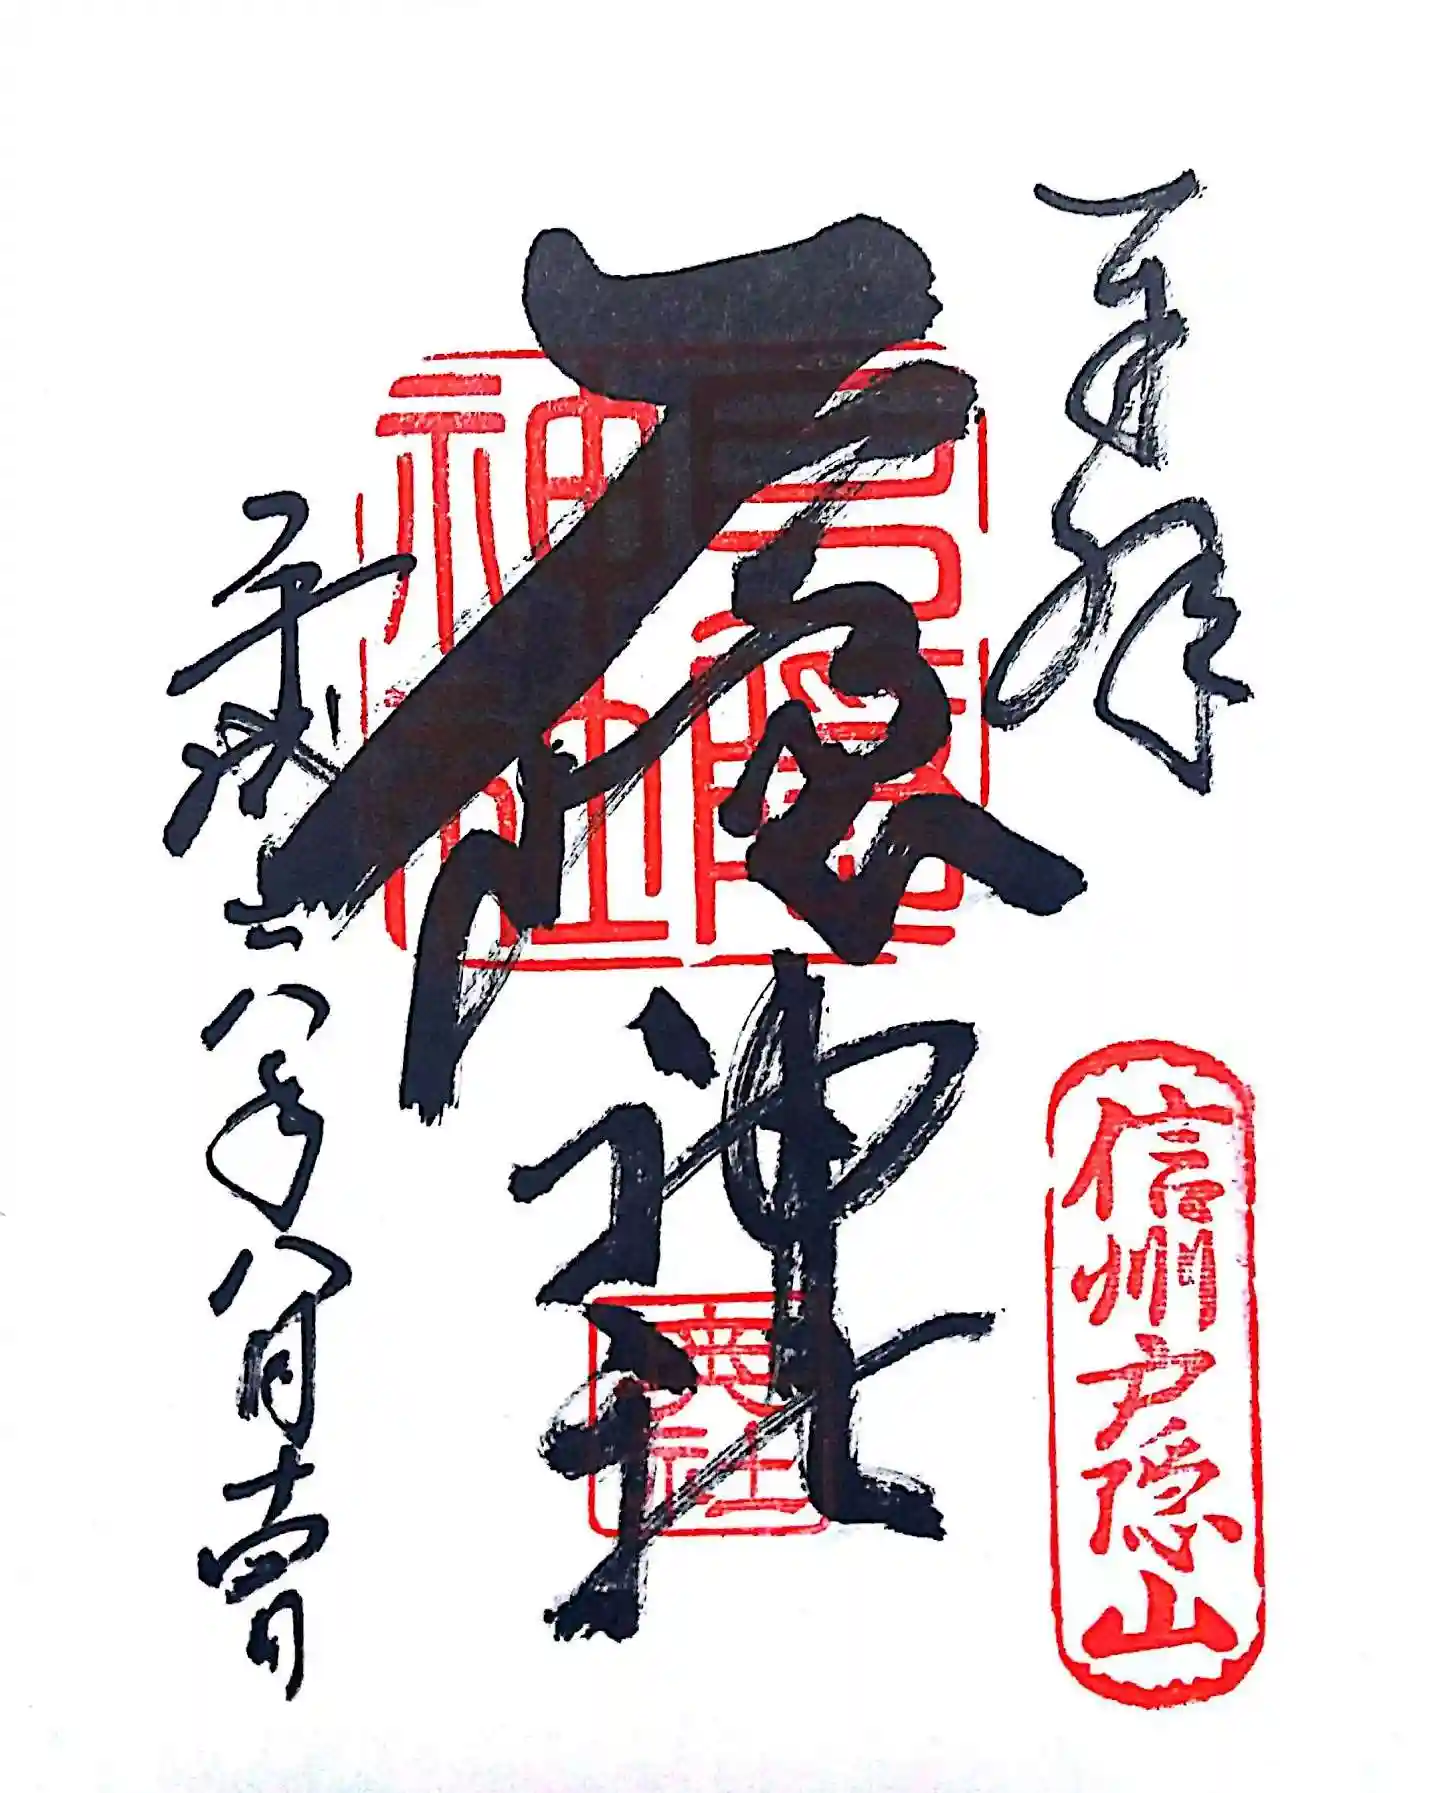 奉拝
信州戸隠山
戸隠神社
戸隠神社
奥社
平成二八年八月十四日